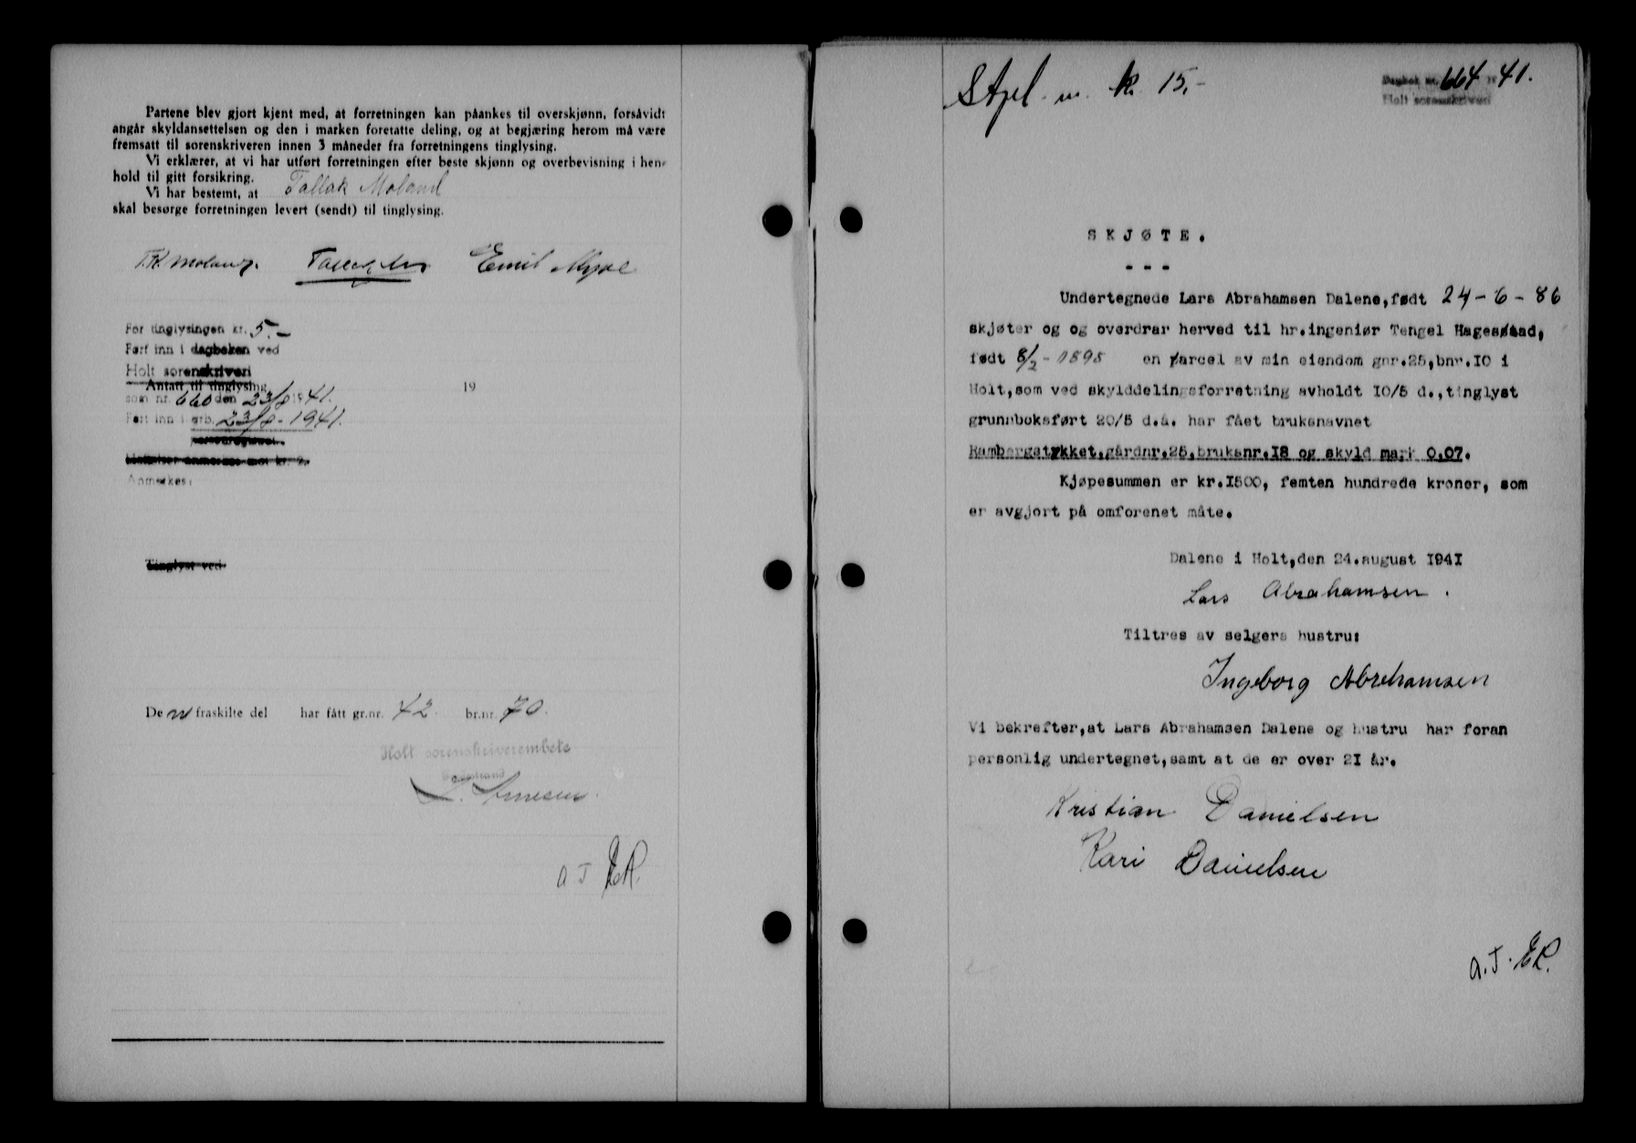 Partene blev gjort kjent med, at forretningen kan påankes til overskjønn, forsåvidt
angår skyldansettelsen og den i marken foretatte deling, og at begjæring herom må være
fremsatt til sorenskriveren innen 3 måneder fra forretningens tinglysing.
Vi erklærer, at vi har utført forretningen efter beste skjønn og overbevisning i hen-
hold til gitt forsikring.
Vi har bestemt, at Tallak Moland
skal besørge forretningen levert (sendt) til tinglysing.
T.K. Moland. Emil
For tinglysingen kr. 5.-
Ført inn i dagboken ved
Holt sorenskriveri
Antatt til tinglysing 19
som nr. 660 den 23/8 1941.
Ført inn i grb. 23/8-1941.
Anmerkes:
Tinglyst ved
De n fraskilte del har fått gr.nr. 42 br.nr. 70.
Holt sorenskriverembete
A.J. ER.
Stpl. m. kr. 15,-
Dagbok nr. 664 19 41.
Holt sorenskriveri
SKJØTE.
---
Undertegnede Lars Abrahamsen Dalene, født 24-6-86
skjøter og og overdrar herved til hr.ingeniør Tengel Hagestad,
født 8/2-1898 en parcel av min eiendom gnr.25,bnr.10 i
Holt,som ved skylddelingsforretning avholdt 10/5 d.,tinglyst
grunnboksført 20/5 d.å. har fået bruksnavnet
Rambergstykket,gårdnr.25,bruksnr.18 og skyld mark 0.07.
Kjøpesummen er kr.1500, femten hundrede kroner, som
er avgjort på omforenet måte.
Dalene i Holt,den 24.august 1941
Lars Abrahamsen.
Tiltres av selgers hustru:
Ingeborg Abrahamsen
Vi bekrefter,at Lars Abrahamsen Dalene og hustru har foran
personlig undertegnet,samt at de er over 21 år.
Kristian Danielsen
Kari Danielsen
A.J. ER.